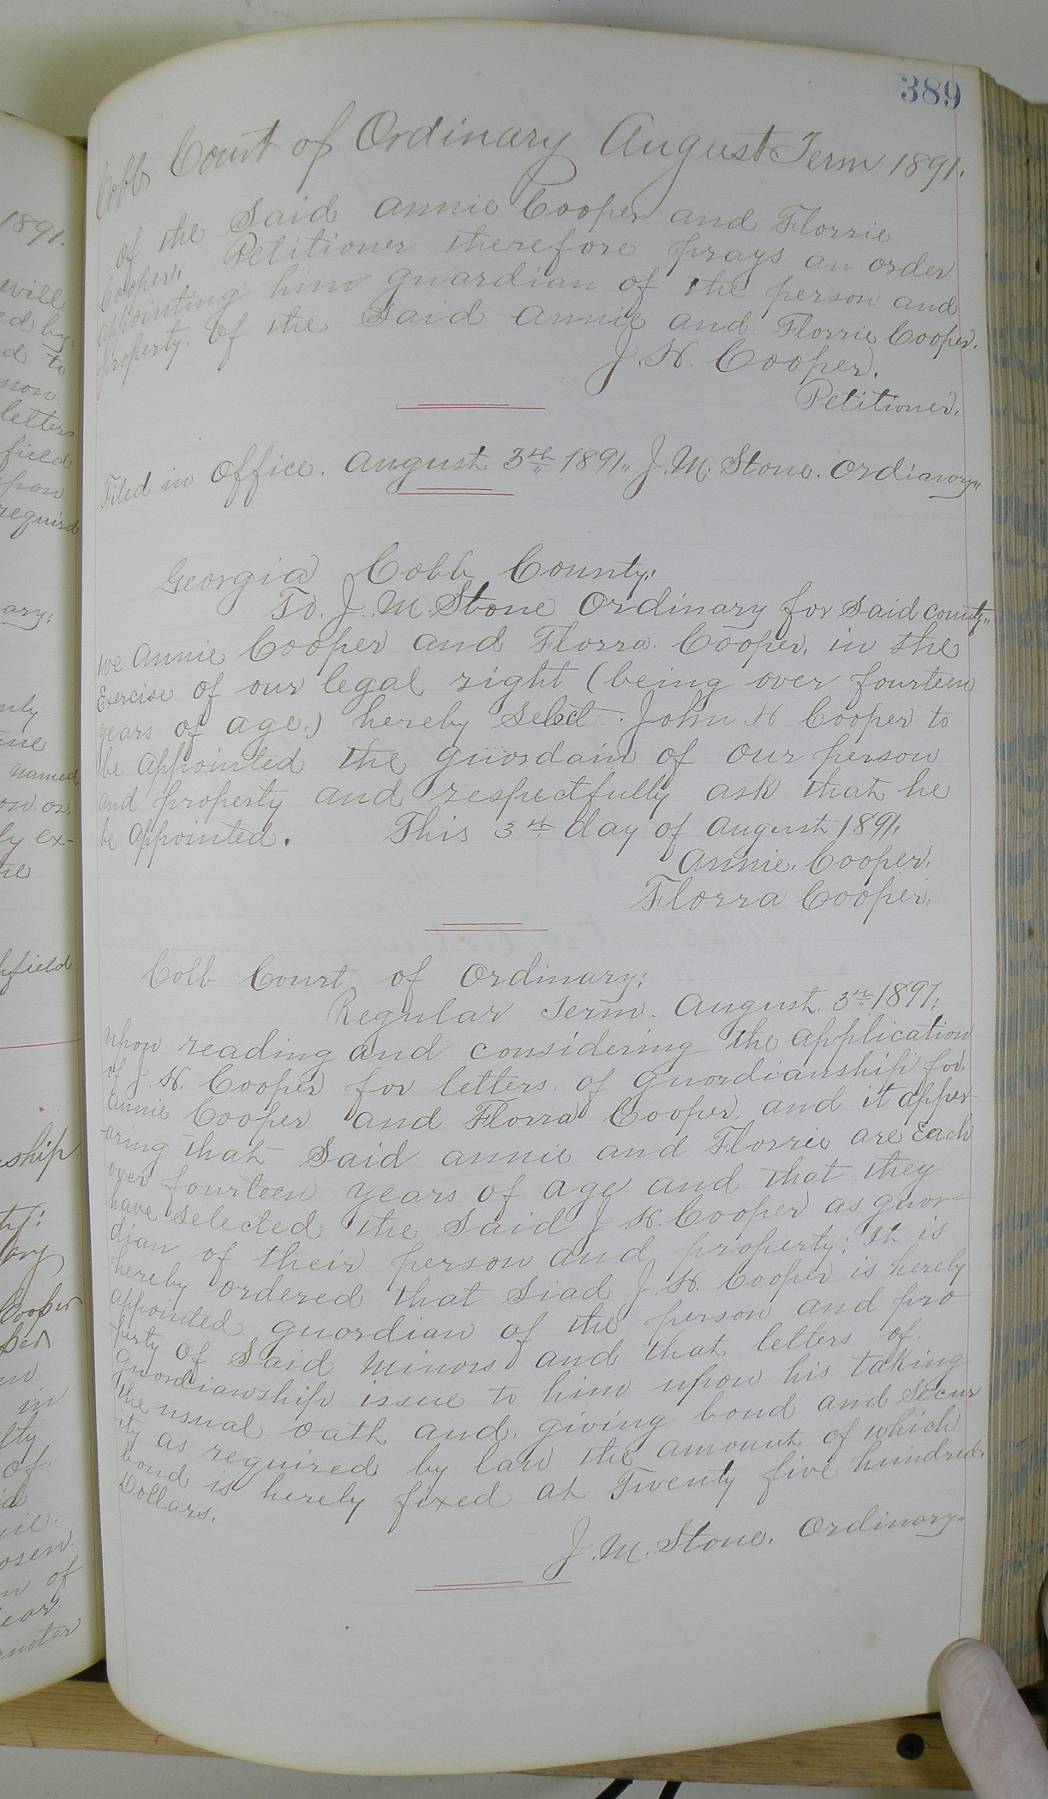 389
Cobb Court of Ordinary August Term 1891.
of the Said Annie Cooper and Florrie
Cooper. Petitioner therefore prays an order
appointing him guardian of the person and
property of the Said Annie and Florrie Cooper.
J. H. Cooper.
Petitioner.
Filed in Office. August 3rd 1891. J. M. Stone. Ordinary
Georgia Cobb County.
To. J. M. Stone Ordinary for Said county
we Annie Cooper and Florra Cooper, in the
Exercise of our legal right (being over fourteen
years of age.) hereby Select John H Cooper to
be appointed the guardain of our person
and property and respectfully ask that he
be appointed. This 3rd day of August 1891.
Annie. Cooper.
Florra Cooper.
Cobb Court of Ordinary:
Regular Term. August 3rd 1891.
Upon reading and considering the application
of J. H. Cooper for letters of guardianship for
Annie Cooper and Florra Cooper and it appe
aring that Said Annie and Florrie are Each
over fourteen years of age and that they
have selected the Said J H. Cooper as guar-
dian of their person and property; it is
hereby ordered that Siad J. H. Cooper is hereby
appointed guardian of the person and pro
perty of Said minors and that letters of
guardianship issue to him upon his taking
the usual oath and giving bond and Secur
ity as required by law the amount of which
bond is hereby fixed at Twenty five hundred
Dollars.
J. M. Stone. Ordinary
1891.
will
ed by
d to
letters
field
upon
requird
ary:
named
on or
ly ex-
field
ship
Cooper
in
of
osen